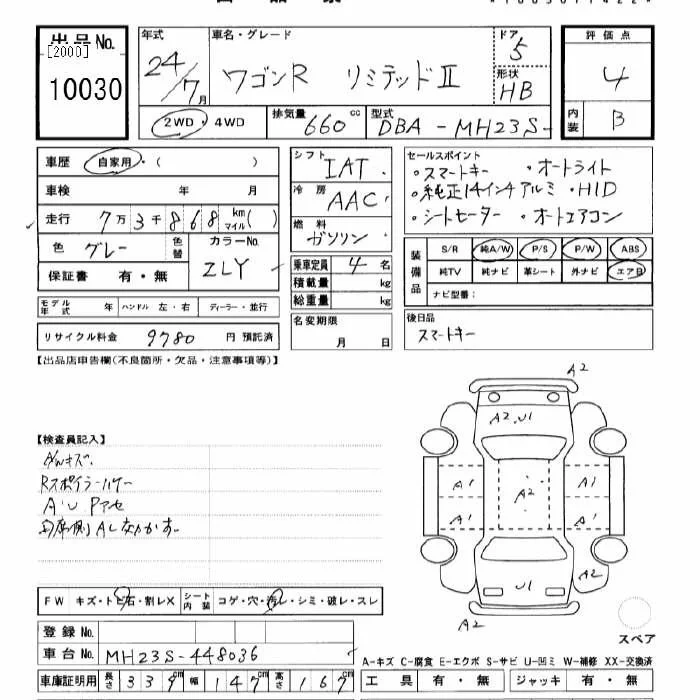 出品No. [2000] 10030
年式 24/7月
車名・グレード ワゴンR リミテッドII
ドア 5
形状 HB
2WD・4WD
排気量 660 cc
型式 DBA-MH23S-
評価点 4
内装 B
車歴 自家用・( )
車検 年 月
走行 7万3千868 km マイル( )
色 グレー 色替
カラーNo. ZLY
保証書 有・無
モデル年式 年 ハンドル 左・右 ディーラー・並行
リサイクル料金 9780 円 預託済
シフト IAT
冷房 AAC
燃料 ガソリン
乗車定員 4 名
積載量 kg
総重量 kg
名変期限 月 日
セールスポイント
・スマートキー ・オートライト
・純正14インチアルミ ・HID
・シートヒーター ・オートエアコン
装備品 S/R 純A/W P/S P/W ABS
純TV 純ナビ 革シート 外ナビ エアB
ナビ型番:
後日品
スマートキー
【出品店申告欄(不良箇所・欠品・注意事項等)】
【検査員記入】
A/Wキズ.
Rスポイラーハゲー
A・U
A2
A2 U1
A1 A1
A2
A1 A1
U1 A2
A2
スペア
FW キズ・トビ石・割レX シート内装 コゲ・穴・汚レ・シミ・破レ・スレ
登録No.
車台No. MH23S-448036
車庫証明用 長さ 339cm 幅 147cm 高さ 167cm
A-キズ C-腐食 E-エクボ S-サビ U-凹ミ W-補修 XX-交換済
工具 有・無 ジャッキ 有・無